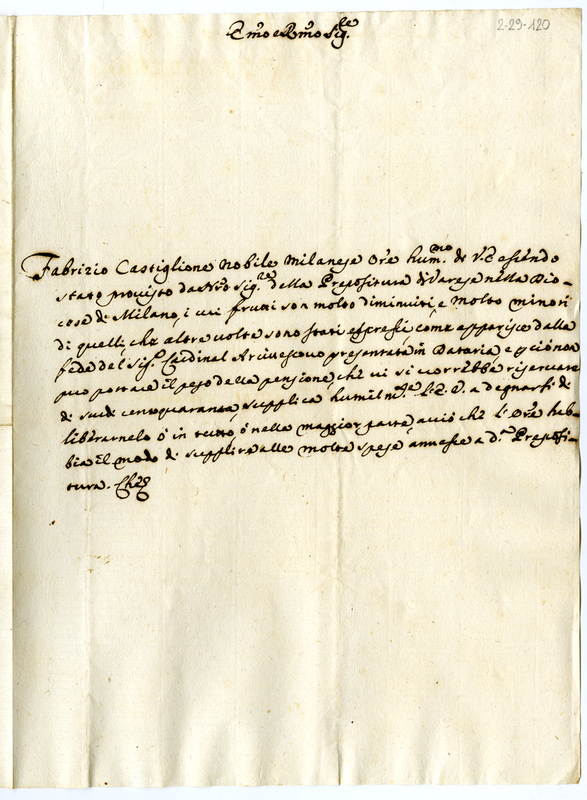 2-29-120
Emo e Rmo Sigre
Fabrizio Castiglione nobile milanese Ore hummo di V.E. essendo
stato provisto da Nro Sigre della Prepositura di Varese nella Dio-
cese di Milano, i cui frutti son molto diminuiti e molto minori
di quelli, che altre volte sono stati espressi, come apparisce dalla
fede del Sigr Cardinal Arcivescovo presentata in Dataria, e perciò non
può portare il peso della pensione, che vi si vorrebbe riservare
di scudi centoquaranta, supplica humilmte V.E. a degnarsi di
liberarnelo ò in tutto, ò nella maggior parte, acciò che l'Ore hab-
bia il modo di supplire alle molte spese annesse a da Preposi-
tura. Che